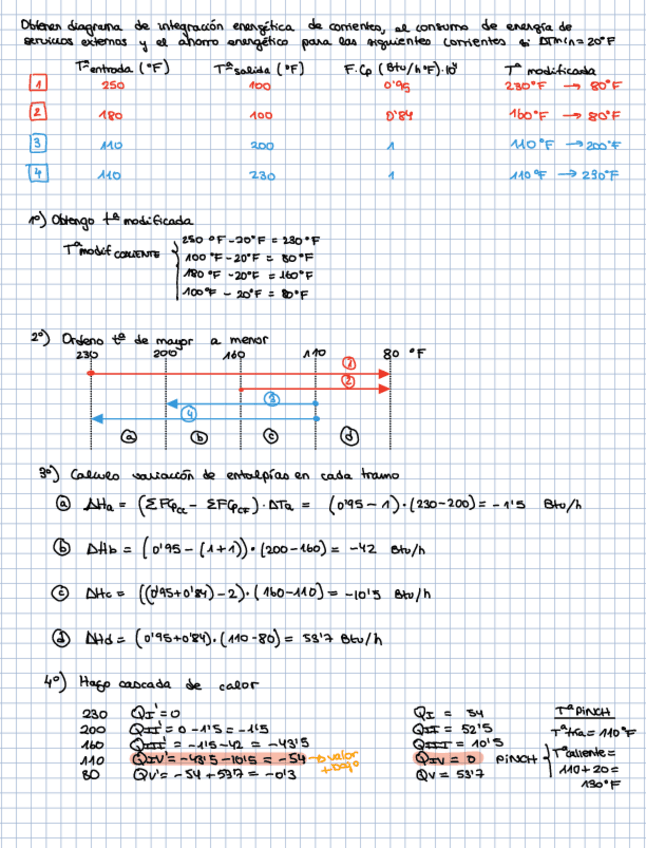 Obtener diagrama de integración energética de corrientes, al consumo de energía de
servicios externos y el ahorro energético para las siguientes corrientes si ΔTmín = 20°F
Tª entrada (°F) Tª salida (°F) F.Cp (Btu/h°F)·10⁴ Tª modificada
1 250 100 0'95 230°F → 80°F
2 180 100 0'84 160°F → 80°F
3 110 200 1 110°F → 200°F
4 110 230 1 110°F → 230°F
1º) Obtengo tª modificada
Tª modif CORRIENTE { 250 °F - 20°F = 230°F
100 °F - 20°F = 80°F
180 °F - 20°F = 160°F
100°F - 20°F = 80°F
2º) Ordeno tª de mayor a menor
230 200 160 110 80 °F
1
2
3
4
a b c d
3º) Calculo variación de entalpías en cada tramo
a ΔHa = (ΣFCp_CC - ΣFCp_CF)·ΔTa = (0'95 - 1)·(230-200) = -1'5 Btu/h
b ΔHb = (0'95 - (1+1))·(200-160) = -42 Btu/h
c ΔHc = ((0'95+0'84)-2)·(160-110) = -10'5 Btu/h
d ΔHd = (0'95+0'84)·(110-80) = 53'7 Btu/h
4º) Hago cascada de calor
230 QI' = 0 QI = 54 Tª PINCH
200 QII' = 0 - 1'5 = -1'5 QII = 52'5 Tª fría = 110°F
160 QIII' = -1'5 - 42 = -43'5 QIII = 10'5
110 QIV' = -43'5 - 10'5 = -54 → valor + bajo QIV = 0 PINCH Tª caliente =
80 QV' = -54 + 53'7 = -0'3 QV = 53'7 110 + 20 =
130°F